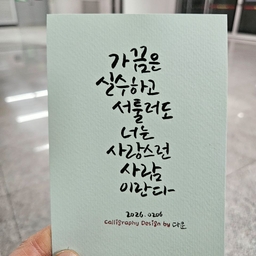 가끔은
실수하고
서툴러도
너는
사랑스런
사람
이란다
2026.0206
Calligraphy Design by 다운